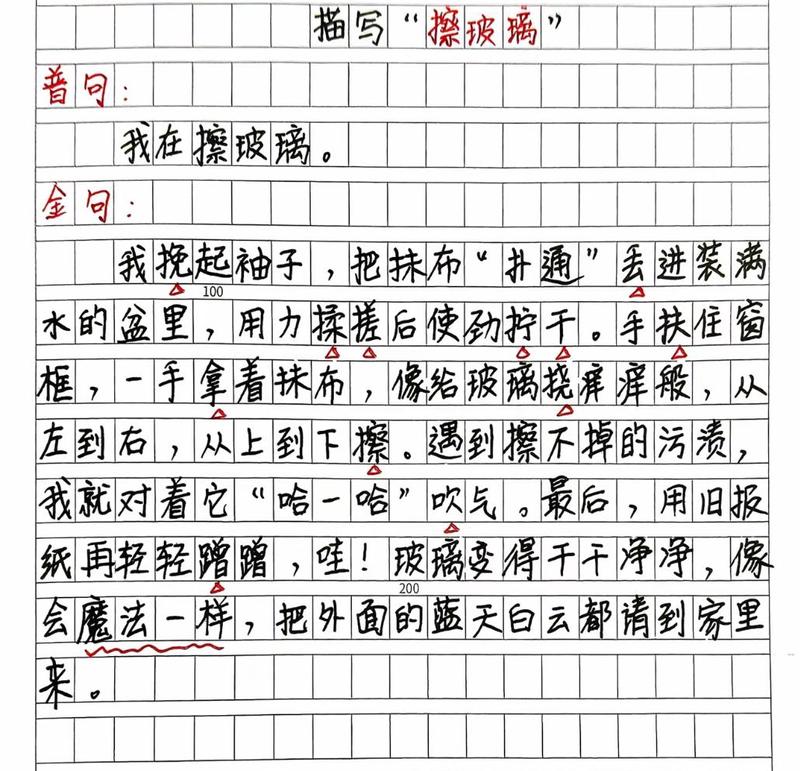 描写“擦玻璃”
普句：
我在擦玻璃。
金句：
我挽起袖子，把抹布“扑通”丢进装满
100
水的盆里，用力揉搓后使劲拧干。手扶住窗
框，一手拿着抹布，像给玻璃挠痒痒般，从
左到右，从上到下擦。遇到擦不掉的污渍，
我就对着它“哈一哈”吹气。最后，用旧报
纸再轻轻蹭蹭，哇！玻璃变得干干净净，像
200
会魔法一样，把外面的蓝天白云都请到家里
来。